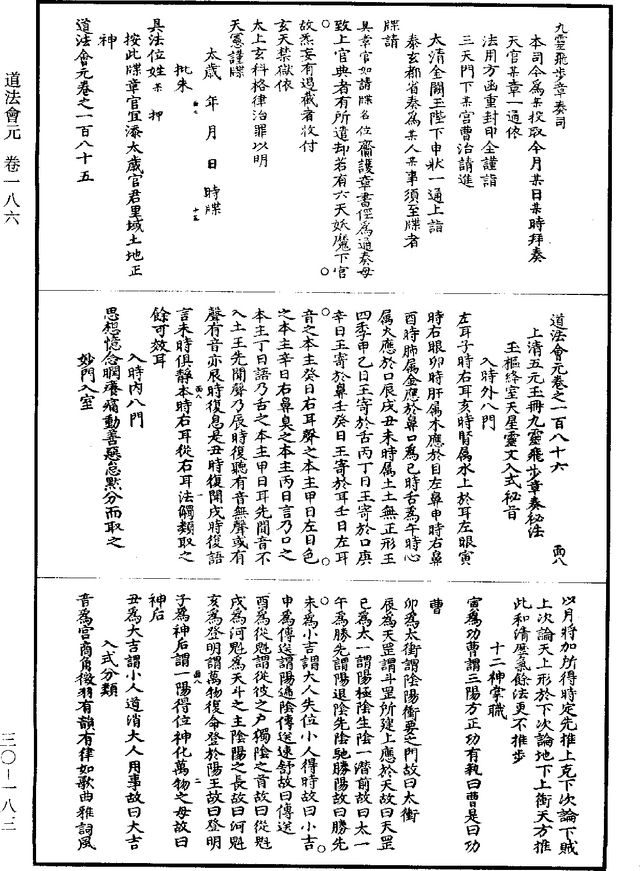 九靈飛步章奏司
本司今為某投取今月某日某時拜奏
天官某章一通依
法用方函重封印全謹詣
三天門下某宮曹治請進
太清金闕玉陛下申狀一通上詣
泰玄都省泰為某人某事須至牒者
牒請
具章官如請牒名位齎護章書徑為通奏毋
致上官典者有所遺却若有六天妖魔下官
故炁妄有遏截者收付
玄天禁獄依
太上玄科格律治罪以明
天憲謹牒
太歲 年 月 日 時牒
批朱
具法位姓某 押
按此牒章官宜添太歲官君里域土地正
神
道法會元卷之一百八十五
道法會元卷之一百八十六
上清五元玉冊九靈飛步章奏秘法
玉樞絳室天星靈文入式秘旨
入時外八門
左耳子時右耳亥時腎属水上於耳左眼寅
時右眼卯時肝属木應於目左鼻申時右鼻
酉時肺属金應於鼻口為巳時舌為午時心
属火應於口辰戌丑未時属土土無正形王
四季甲乙日王寄於舌丙丁日王寄於口庚
辛日王寄於鼻壬癸日王寄於耳壬日左耳
音之本主癸日右耳聲之本主甲日左目色
之本主辛日右鼻臭之本主丙日言乃口之
本主丁日語乃舌之本主甲日耳先聞音不
入土王先聞聲乃辰時復聽有音無聲或有
聲有音亦辰時復息是丑時復聞戌時復語
言未時俱靜本時右耳從右耳法觸類取之
餘可效耳
入時內八門
思想憶念瞤癢痛動善惡怠默分而取之
妙門入室
以月將加所得時定先推上克下次論下賊
上次論天上形於下次論地下上衝天方推
此和清曆氣餘法更不推步
十二神掌職
寅為功曹謂三陽方正功有執曰曹是曰功
曹
卯為太衝謂陰陽衝要之門故曰太衝
辰為天罡謂斗罡所建上應於天故曰天罡
巳為太一謂陽極陰生陰一潛前故曰太一
午為勝先謂陽退陰先陰馳勝陽故曰勝先
未為小吉謂大人失位小人得時故曰小吉
申為傳送謂陽遁陰傳送連舒故曰傳送
酉為從魁謂從彼之户獨陰之首故曰從魁
戌為河魁為天斗之主陰陽之長故曰河魁
亥為登明謂萬物復命登於陽王故曰登明
子為神后謂一陽得位神化萬物之母故曰
神后
丑為大吉謂小人道消大人用事故曰大吉
入式分類
音為宮商角徵羽有韻有律如歌曲雅詞風
道法會元 卷一八六
三〇－一八二